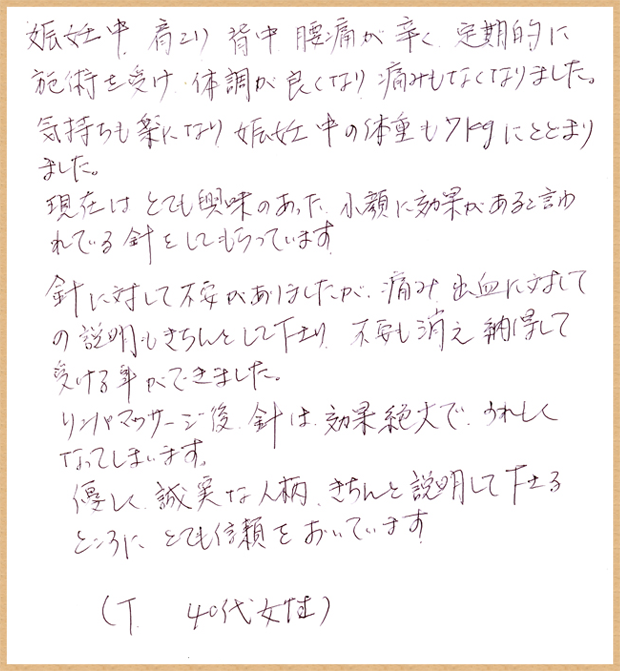 妊娠中 肩こり 背中 腰痛が辛く 定期的に
施術を受け 体調が良くなり 痛みもなくなりました。
気持ちも楽になり 妊娠中の体重も7kgにとどまり
ました。
現在は とても興味のあった、小顔に効果があると言わ
れている針をしてもらっています
針に対して不安がありましたが、痛み、出血に対して
の説明もきちんとして下さり 不安も消え 納得して
受ける事ができました。
リンパマッサージ後、針は、効果絶大で、うれしく
なってしまいます。
優しく、誠実な人柄、きちんと説明して下さる
ところに とても信頼をおいています
(T. 40代女性)